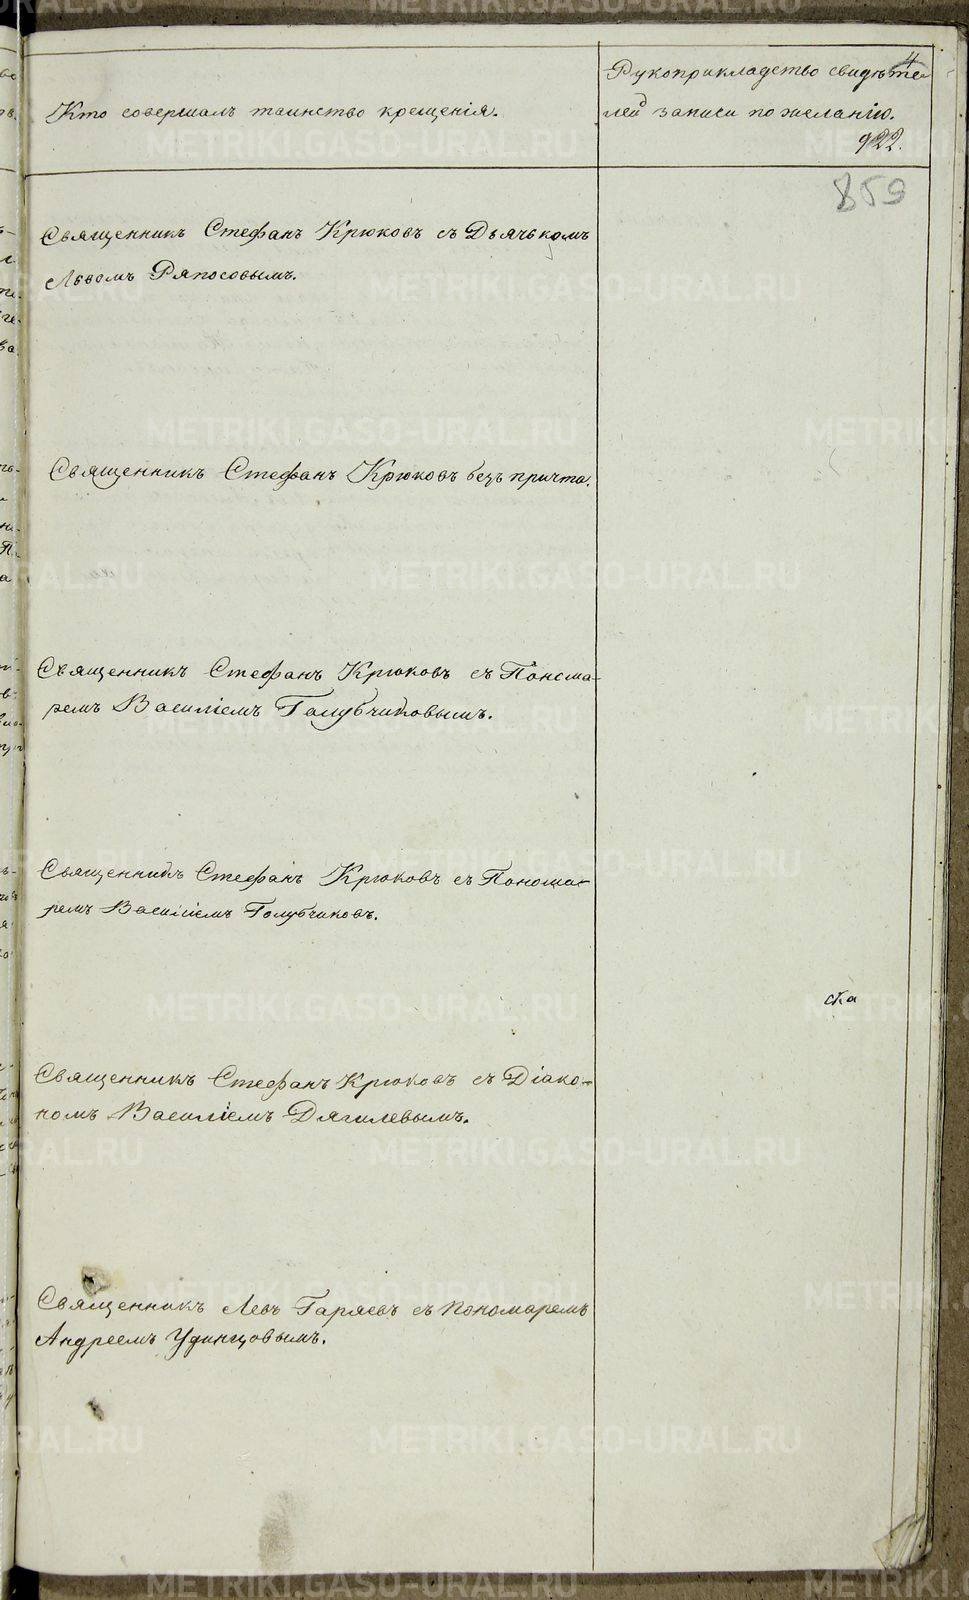 Кто совершалъ таинство крещенія.
Рукоприкладство свидѣте-
лей записи по желанію.
4
922.
859
Священникъ Стефанъ Крюковъ съ Дьячькомъ
Львомъ Ряпосовымъ.
Священникъ Стефанъ Крюковъ безъ причта.
Священникъ Стефанъ Крюковъ съ Понома-
ремъ Василіемъ Голубчиковымъ.
Священникъ Стефанъ Крюковъ съ Понома-
ремъ Василіемъ Голубчиковъ.
Священникъ Стефанъ Крюковъ съ Діако-
номъ Василіемъ Дягилевымъ.
Священникъ Левъ Гаряевъ съ Пономаремъ
Андреемъ Удинцовымъ.
METRIKI.GASO-URAL.RU